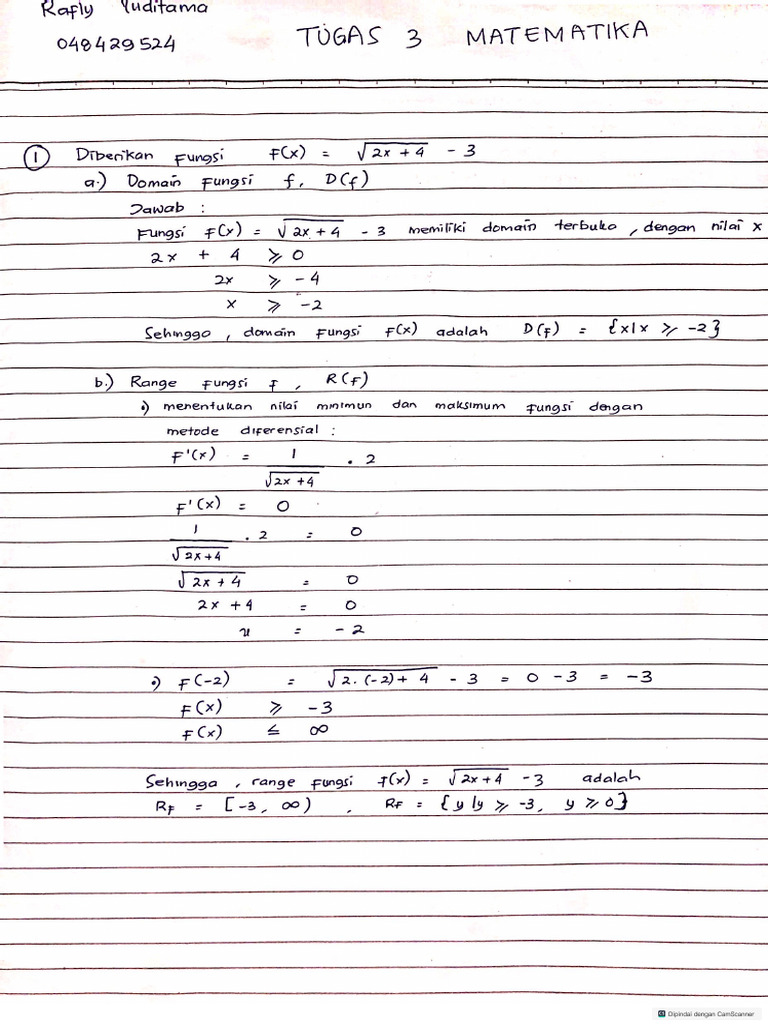 Rafly Yuditama
048429524
TUGAS 3 MATEMATIKA
① Diberikan Fungsi F(x) = √(2x + 4) - 3
a.) Domain Fungsi f, D(f)
Jawab :
Fungsi f(x) = √(2x + 4) - 3 memiliki domain terbuka, dengan nilai x
2x + 4 ⩾ 0
2x ⩾ -4
x ⩾ -2
Sehingga, domain Fungsi F(x) adalah D(f) = {x|x ⩾ -2}
b.) Range Fungsi f, R(f)
•) menentukan nilai minimun dan maksimum fungsi dengan
metode diferensial :
F'(x) = 1/√(2x +4) . 2
F'(x) = 0
1/√(2x+4) . 2 = 0
√(2x + 4) = 0
2x + 4 = 0
x = -2
•) F(-2) = √(2. (-2) + 4) - 3 = 0 - 3 = -3
F(x) ⩾ -3
F(x) ≤ ∞
Sehingga, range Fungsi f(x) = √(2x+4) - 3 adalah
RF = [-3, ∞) , RF = {y|y ⩾ -3, y ⩾ 0}
Dipindai dengan CamScanner